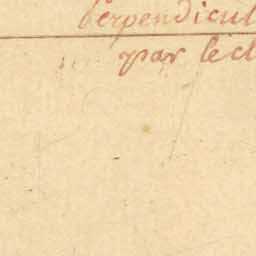 perpendicul
par le cl